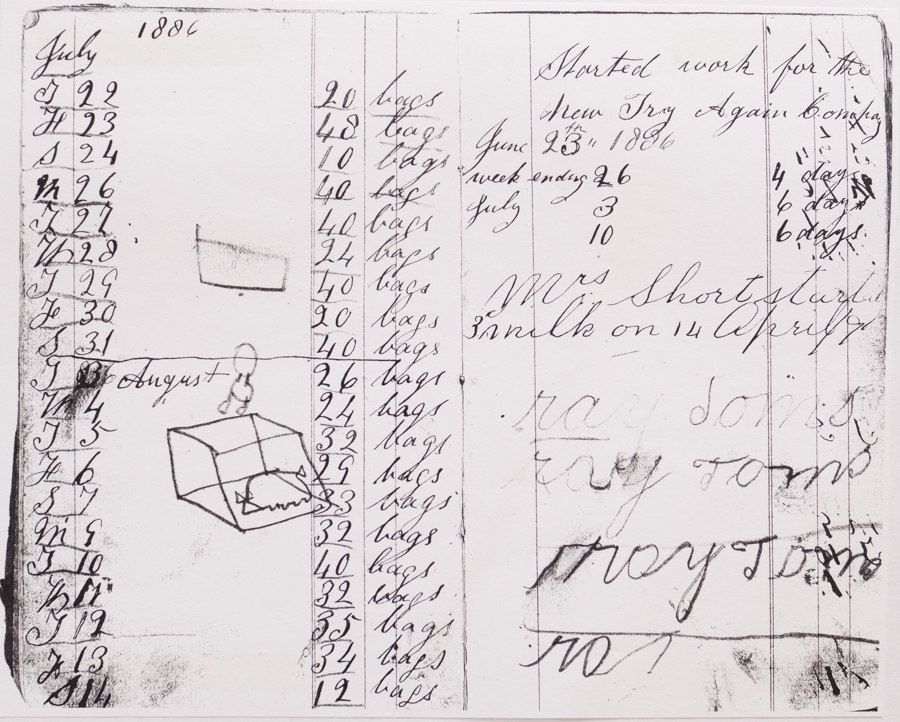 1886
July
T 22 20 bags
F 23 48 bags
S 24 10 bags
M 26 40 bags
T 27 40 bags
W 28 24 bags
T 29 40 bags
F 30 20 bags
S 31 40 bags
T 3 August 26 bags
W 4 24 bags
T 5 32 bags
F 6 29 bags
S 7 33 bags
M 9 32 bags
T 10 40 bags
W 11 32 bags
T 12 35 bags
F 13 34 bags
S 14 12 bags
Started work for the
New Try Again Company
June 23rd 1886
week ending 26 4 days
July 3 6 days
10 6 days
Mrs Short start
milk on 14 April
ray Toms
ray Toms
ray Toms
ra